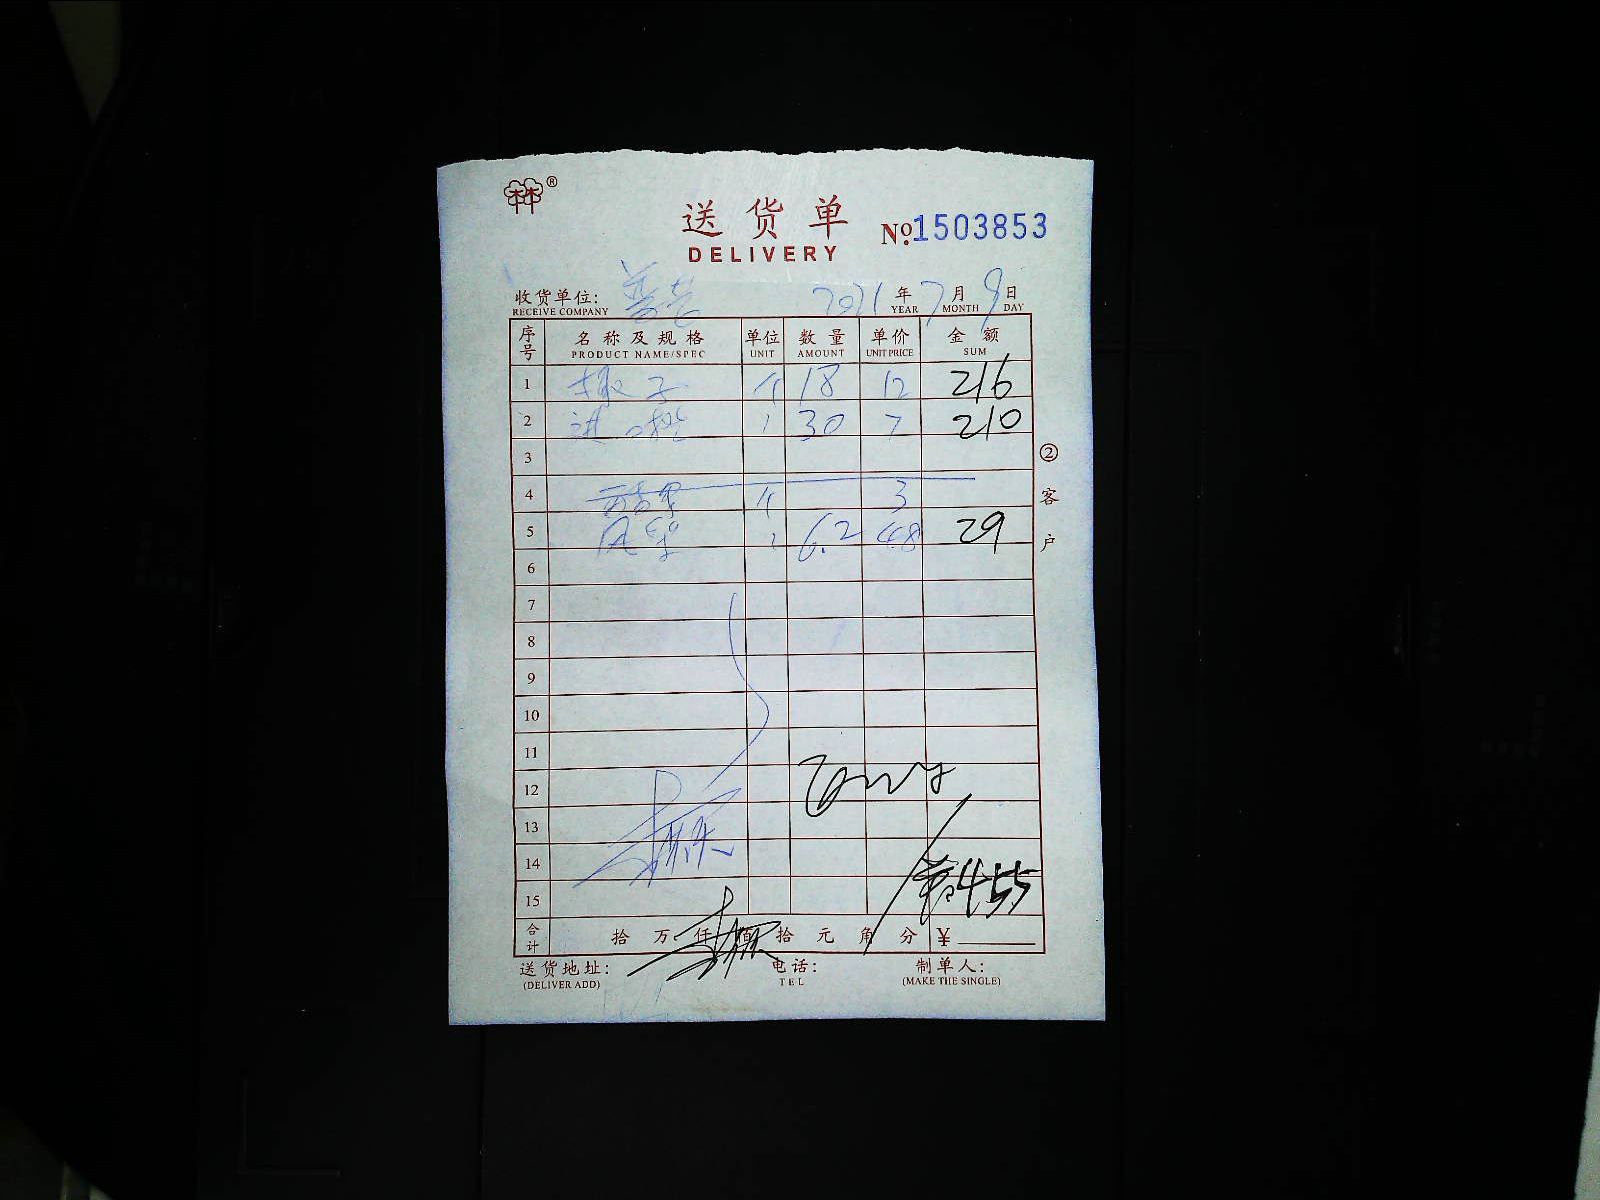 林®
送货单 №1503853
DELIVERY
收货单位: 2021年7月9日
RECEIVE COMPANY YEAR MONTH DAY
序号 名称及规格 单位 数量 单价 金额
PRODUCT NAME/SPEC UNIT AMOUNT UNIT PRICE SUM
1 个 18 12 216
2 进口 30 7 210
3
4 个 3
5 6.2 4.8 29
6
7
8
9
10
11
12
13
14
455
15
合计 拾 万 仟 佰 拾 元 角 分 ¥
送货地址: 电话: 制单人:
(DELIVER ADD) TEL (MAKE THE SINGLE)
② 客户